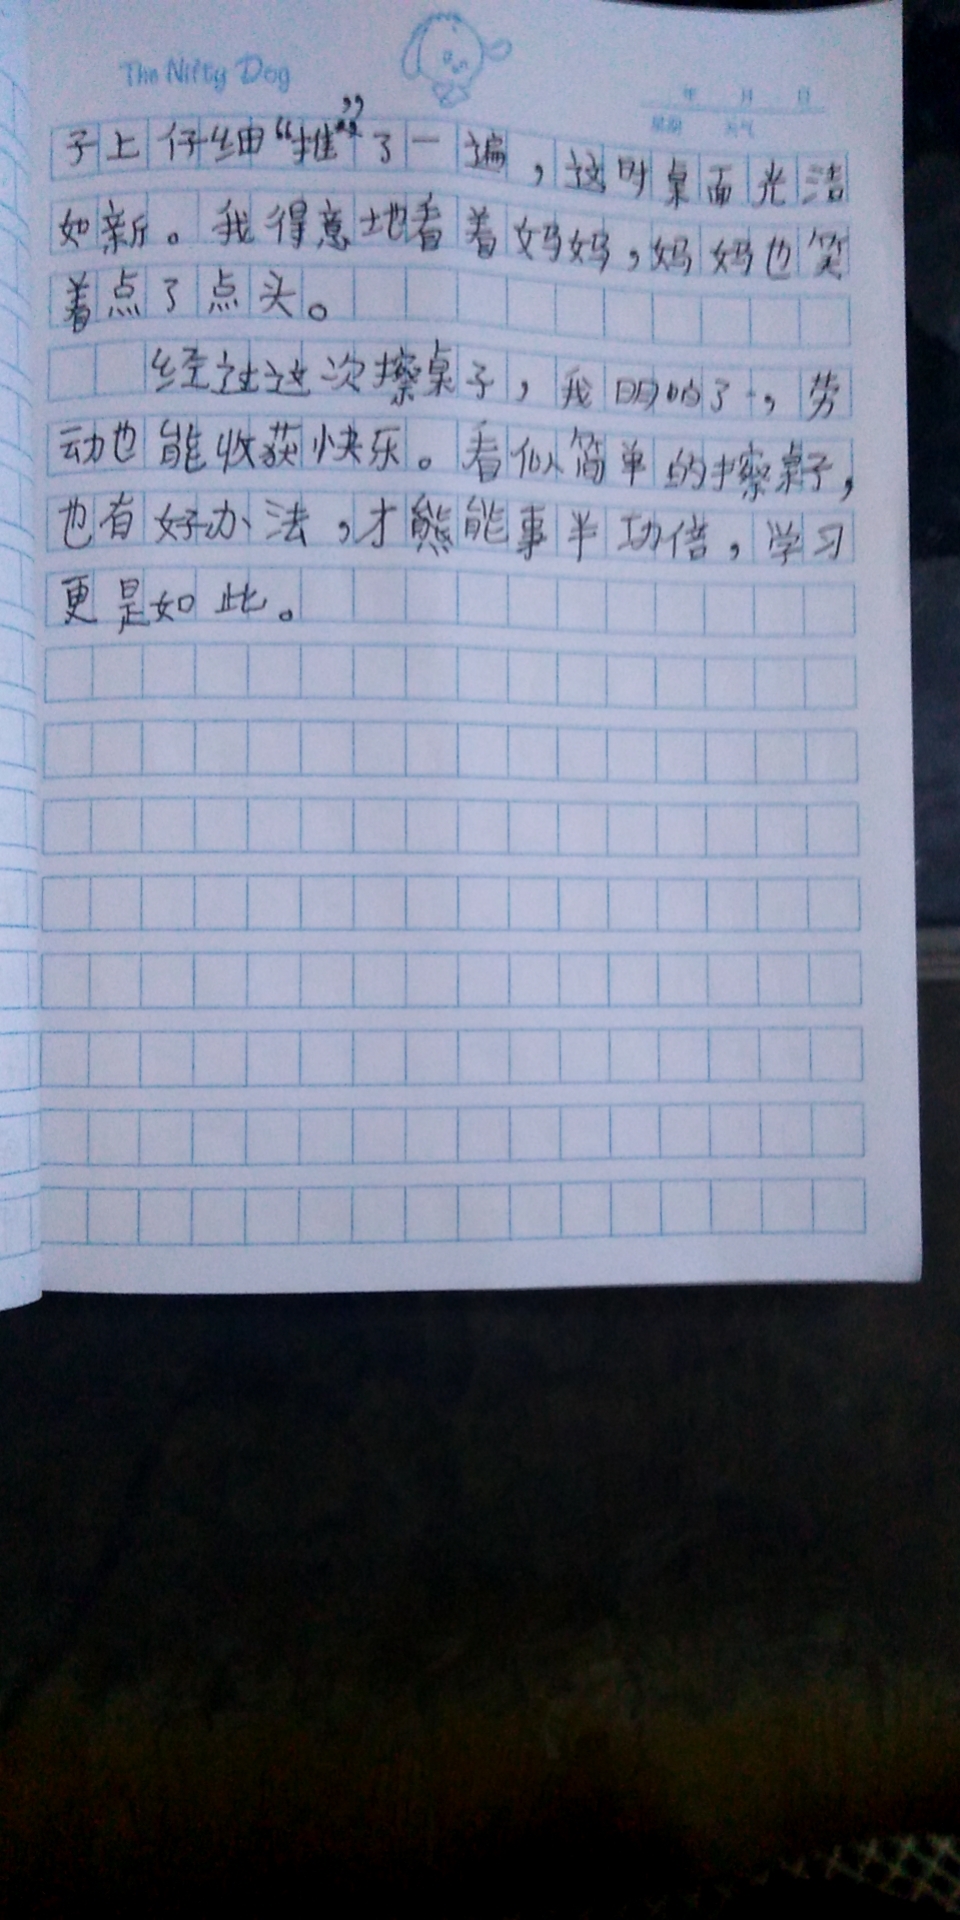 The Nifty Dog
年 月 日
星期 天气
子上仔细“推”了一遍，这时桌面光洁
如新。我得意地看着妈妈，妈妈也笑
着点了点头。
经过这次擦桌子，我明白了，劳
动也能收获快乐。看似简单的擦桌子，
也有好办法，才熊能事半功倍，学习
更是如此。